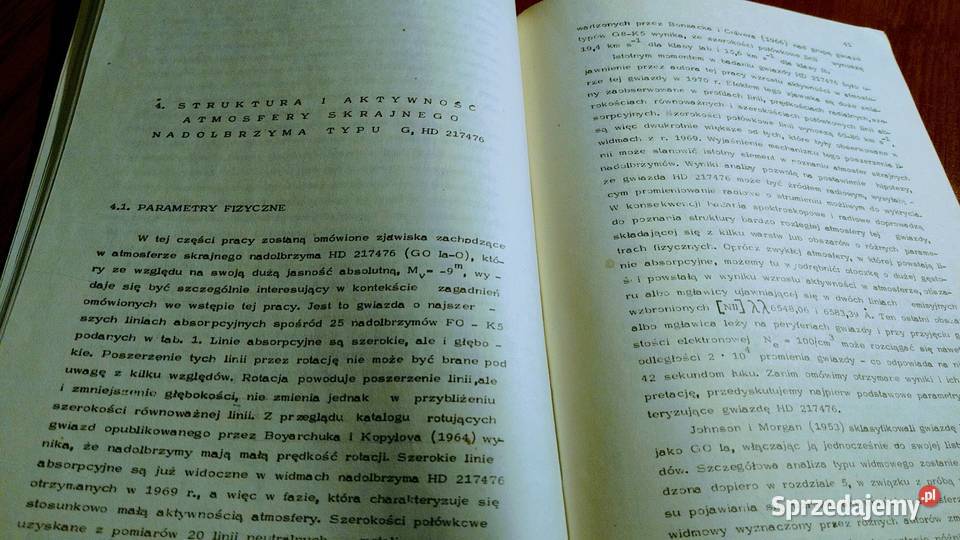 4. STRUKTURA I AKTYWNOŚĆ
ATMOSFERY SKRAJNEGO
NADOLBRZYMA TYPU G, HD 217476
4.1. PARAMETRY FIZYCZNE
W tej części pracy zostaną omówione zjawiska zachodzące
w atmosferze skrajnego nadolbrzyma HD 217476 (GO Ia-O), któ-
ry ze względu na swoją dużą jasność absolutną, Mv= -9m, wy-
daje się być szczególnie interesujący w kontekście zagadnień
omówionych we wstępie tej pracy. Jest to gwiazda o najszer -
szych liniach absorpcyjnych spośród 25 nadolbrzymów FO - K5
podanych w tab. 1. Linie absorpcyjne są szerokie, ale i głębo -
kie. Poszerzenie tych linii przez rotację nie może być brane pod
uwagę z kilku względów. Rotacja powoduje poszerzenie linii,ale
i zmniejszenie głębokości, nie zmienia jednak w przybliżeniu
szerokości równoważnej linii. Z przeglądu katalogu rotujących
gwiazd opublikowanego przez Boyarchuka i Kopylova (1964) wy-
nika, że nadolbrzymy mają małą prędkość rotacji. Szerokie linie
absorpcyjne są już widoczne w widmach nadolbrzyma HD 217476
otrzymanych w 1969 r., a więc w fazie, która charakteryzuje się
stosunkowo małą aktywnością atmosfery. Szerokości połówkcwe
uzyskane z pomiarów 20 linii neutralnych
45
wadzonych przez Bonsacka i Culvera (1966) nad grupą gwiazd
typów G8-K5 wynika, że szerokości połówkowe linii wynoszą
19,4 km s-1 dla klasy Iab i 15,6 km s-1 dla klasy II.
Istotnym momentem w badaniu gwiazdy HD 217476 było u-
jawnienie przez autora tej pracy wzrostu aktywności w atmosfe-
rze tej gwiazdy w 1970 r. Efektem tego zjawiska są duże zmia-
ny zaobserwowane w profilach linii, prędkościach radialnych, sze-
rokościach równoważnych i szerokościach połówkowych linii ab-
sorpcyjnych. Szerokości połówkowe linii wynoszą
są więc dwukrotnie większe od tych, które były obserwowane w
widmach z r. 1969. Wyjaśnienie mechanizmu tego poszerzenia li-
nii może stanowić istotny element w poznaniu atmosfer skrajnych
nadolbrzymów. Wyniki analizy pozwolą na postawienie hipotezy,
że gwiazda HD 217476 może być źródłem radiowym, wysyłają-
cym promieniowanie radiowe o strumieniu możliwym do wykrycia.
W konsekwencji badania spektroskopowe i radiowe doprowadzą
do poznania struktury bardzo rozległej atmosfery tej gwiazdy,
składającej się z kilku warstw lub obszarów o różnych parame-
trach fizycznych. Oprócz zwykłej atmosfery, w której powstają li-
nie absorpcyjne, możemy tu wyodrębnić otoczkę o dużej gęsto-
ści powstałą w wyniku wzrostu aktywności w atmosferze, obsza-
ru albo mgławicy ujawniającej się w dwóch liniach emisyjnych
wzbronionych [NII] λλ 6548,06 i 6583,39 Å. Ten ostatni obszar
albo mgławica leży na peryferiach gwiazdy i przy przyjęciu gę-
stości elektronowej Ne = 100/cm3 może rozciągać się nawet
odległości 2 · 104 promienia gwiazdy - co odpowiada na
42 sekundom łuku. Zanim omówimy otrzymane wyniki i ich
pretację, przedyskutujemy najpierw podstawowe parametry
teryzujące gwiazdę HD 217476.
Johnson i Morgan (1953) sklasyfikowali gwiazdę
jako GO Ia, włączając ją jednocześnie do swojej listy
dów. Szczegółowa analiza typu widmowego zostanie
dzona dopiero w rozdziale 5, w związku z próbą
su pojawiania
widmowy wyznaczony przez różnych autorów
Sprzedajemy.pl